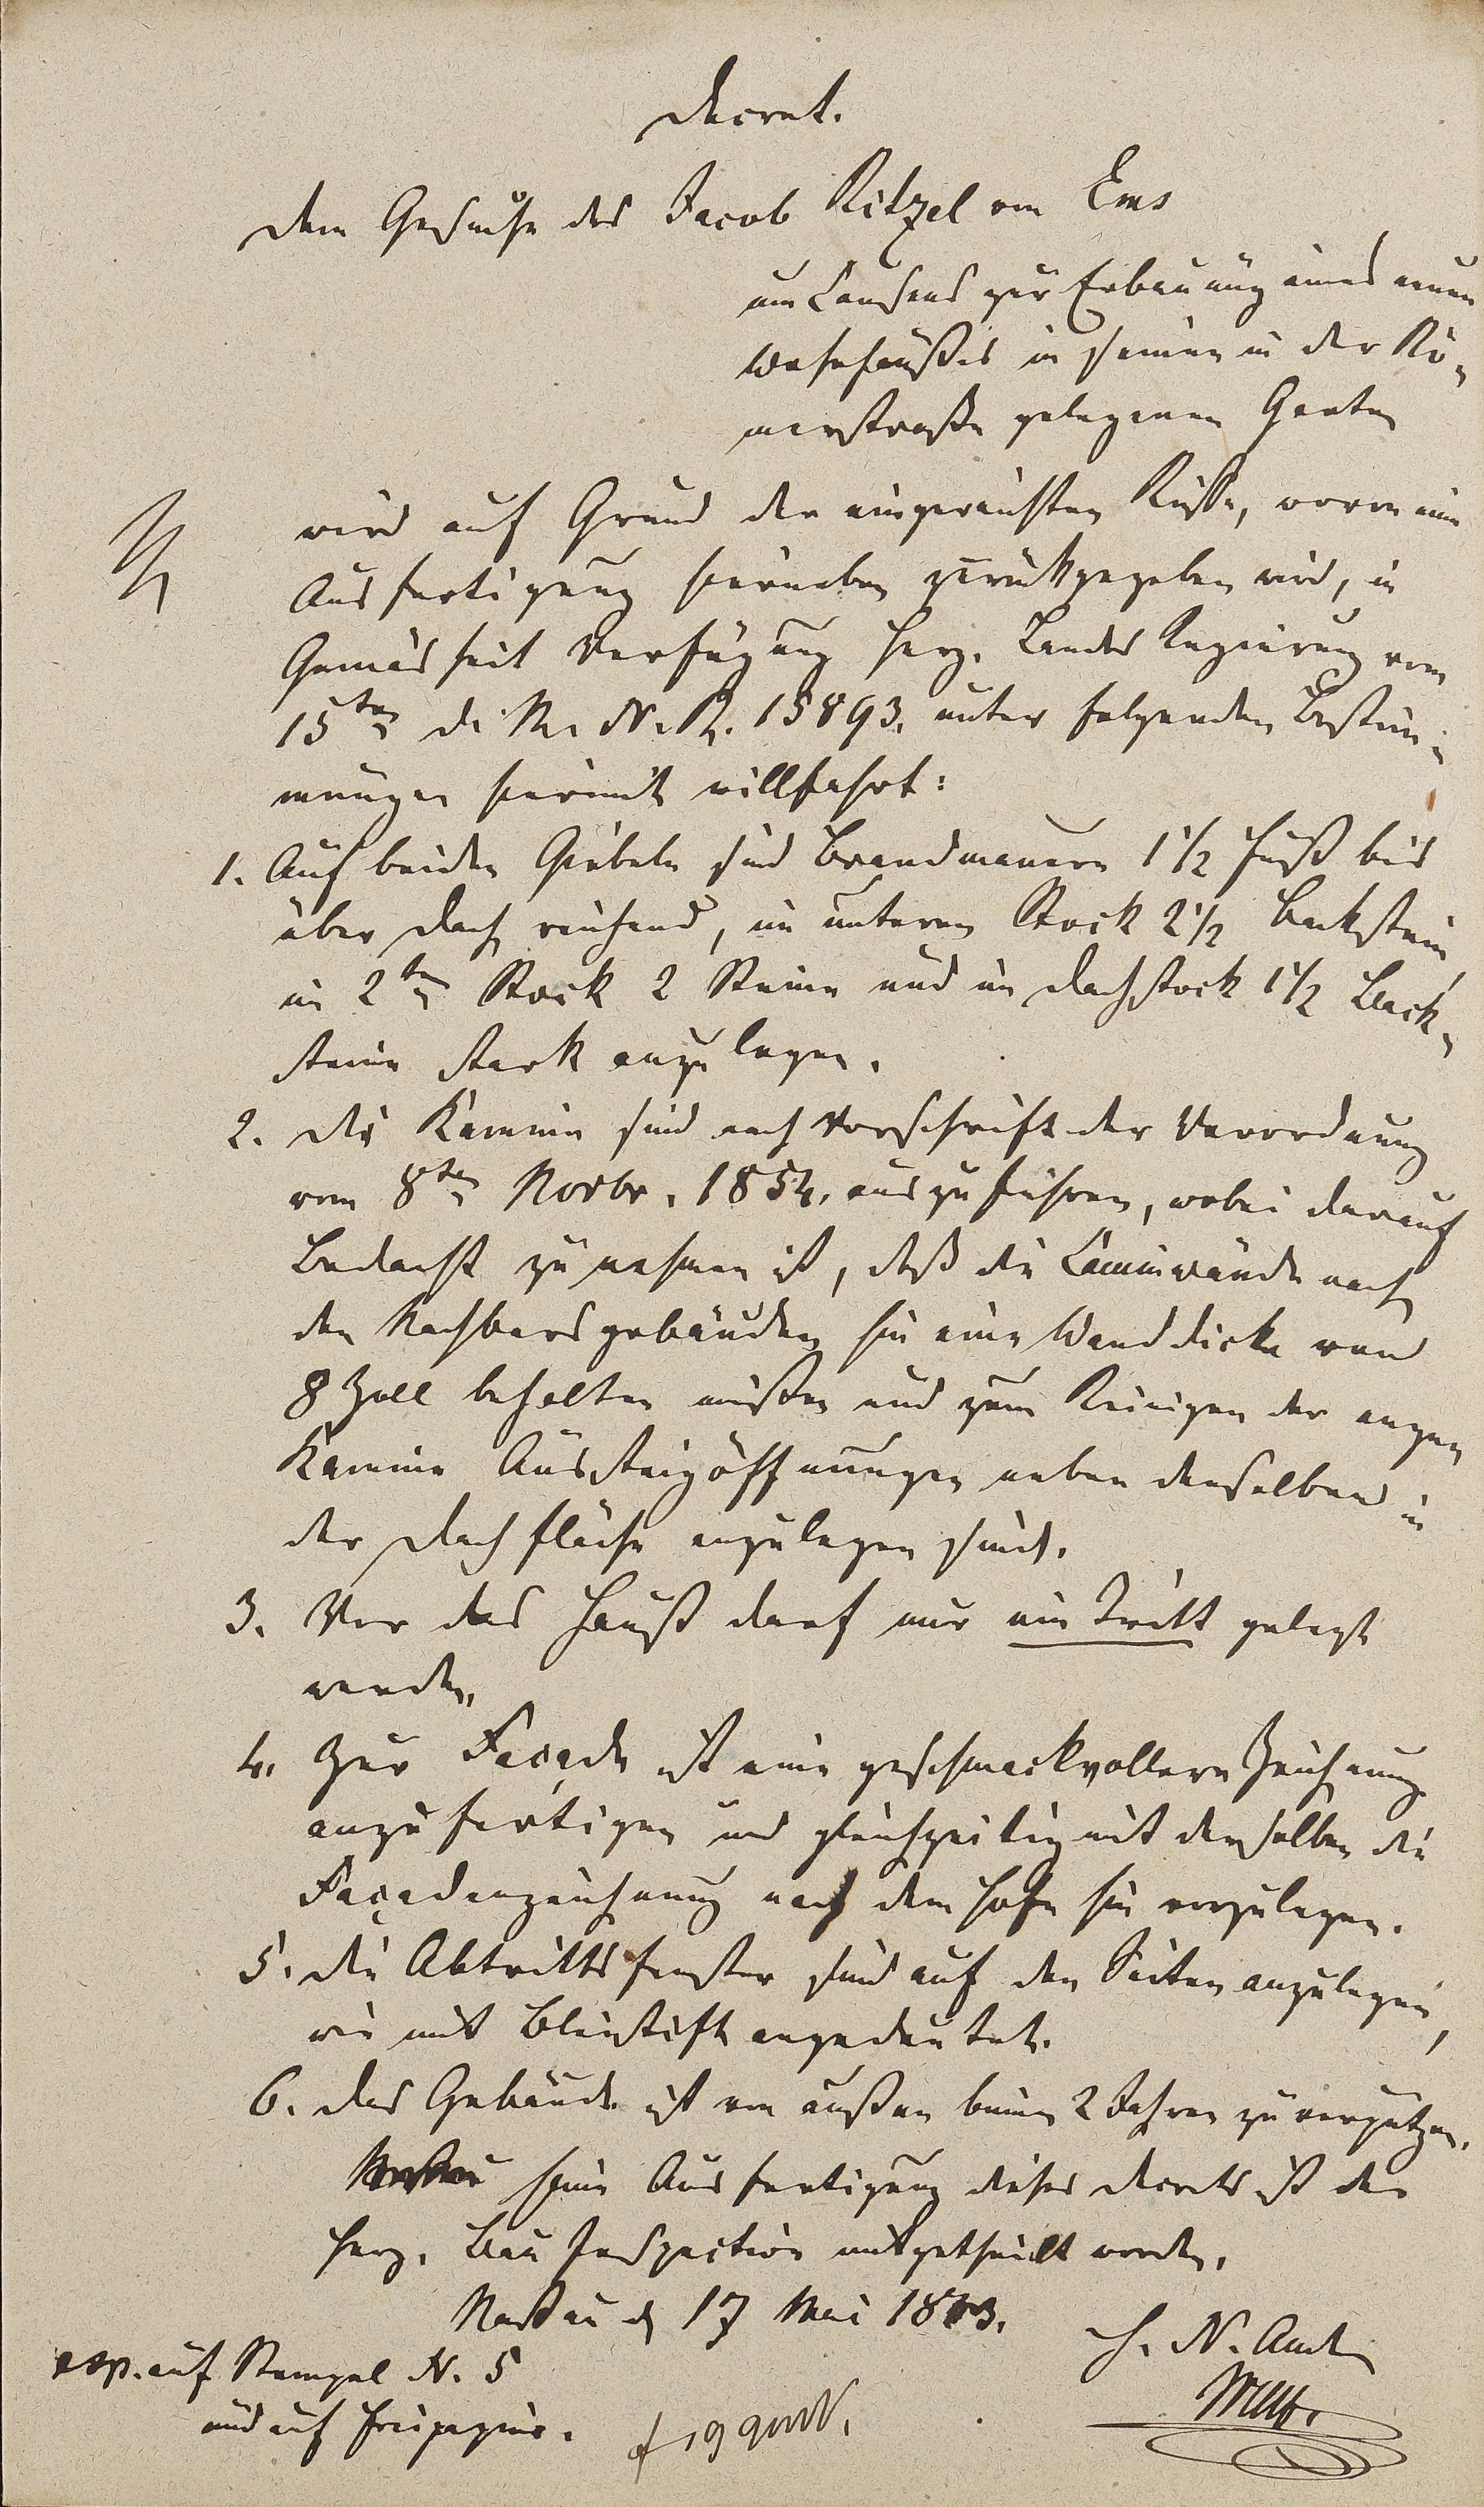 Decret.
Dem Gesuche des Jacob Ritzel von Ems
um Consens zur Erbauung eines neuen
Wohnhaußes in seinem in der Rö-
merstraße gelegenen Garten
wird auf Grund der eingereichten Risse, wovon eine
Ausfertigung hierneben zurückgegeben wird, in
Gemäsheit Verfügung Herz. Landes Regierung vom
15ten d. M. N. R. 15893. unter folgenden Bestim-
mungen hiermit willfahrt:
1. Auf beiden Giebeln sind Brandmauern 1 1/2 Fuß bis
über Dach reichend, im unteren Stock 2 1/2 Backstein,
im 2ten Stock 2 Steine und im Dachstock 1 1/2 Back-
steine stark anzulegen.
2. Die Kamine sind nach Vorschrift der Verordnung
vom 8ten Novbr. 1854. auszuführen, wobei darauf
Bedacht zu nehmen ist, daß die Caminwände nach
den Nachbarsgebäuden hin eine Wanddicke von
8 Zoll behalten müßen und zum Reinigen der engen
Kamine Aussteigöffnungen neben denselben in
der Dachfläche anzulegen sind.
3. Vor das Hauß darf nur ein Tritt gelegt
werden.
4. Zur Façade ist eine geschmackvollere Zeichnung
anzufertigen und gleichzeitig mit derselben die
Façadenzeichnung nach dem Hofe hin vorzulegen.
5. Die Abtrittsfenster sind auf den Seiten anzulegen,
wie mit Bleistift angedeutet.
6. Das Gebäude ist von außen binnen 2 Jahren zu verputzen.
Eine Ausfertigung dieses Decrets ist der
Herz. Bau Inspection mitgetheilt worden.
Nassau d 17 Mai 1863.
H. N. Amt
exp. auf Stempel N. 5
und auf Freipapier.